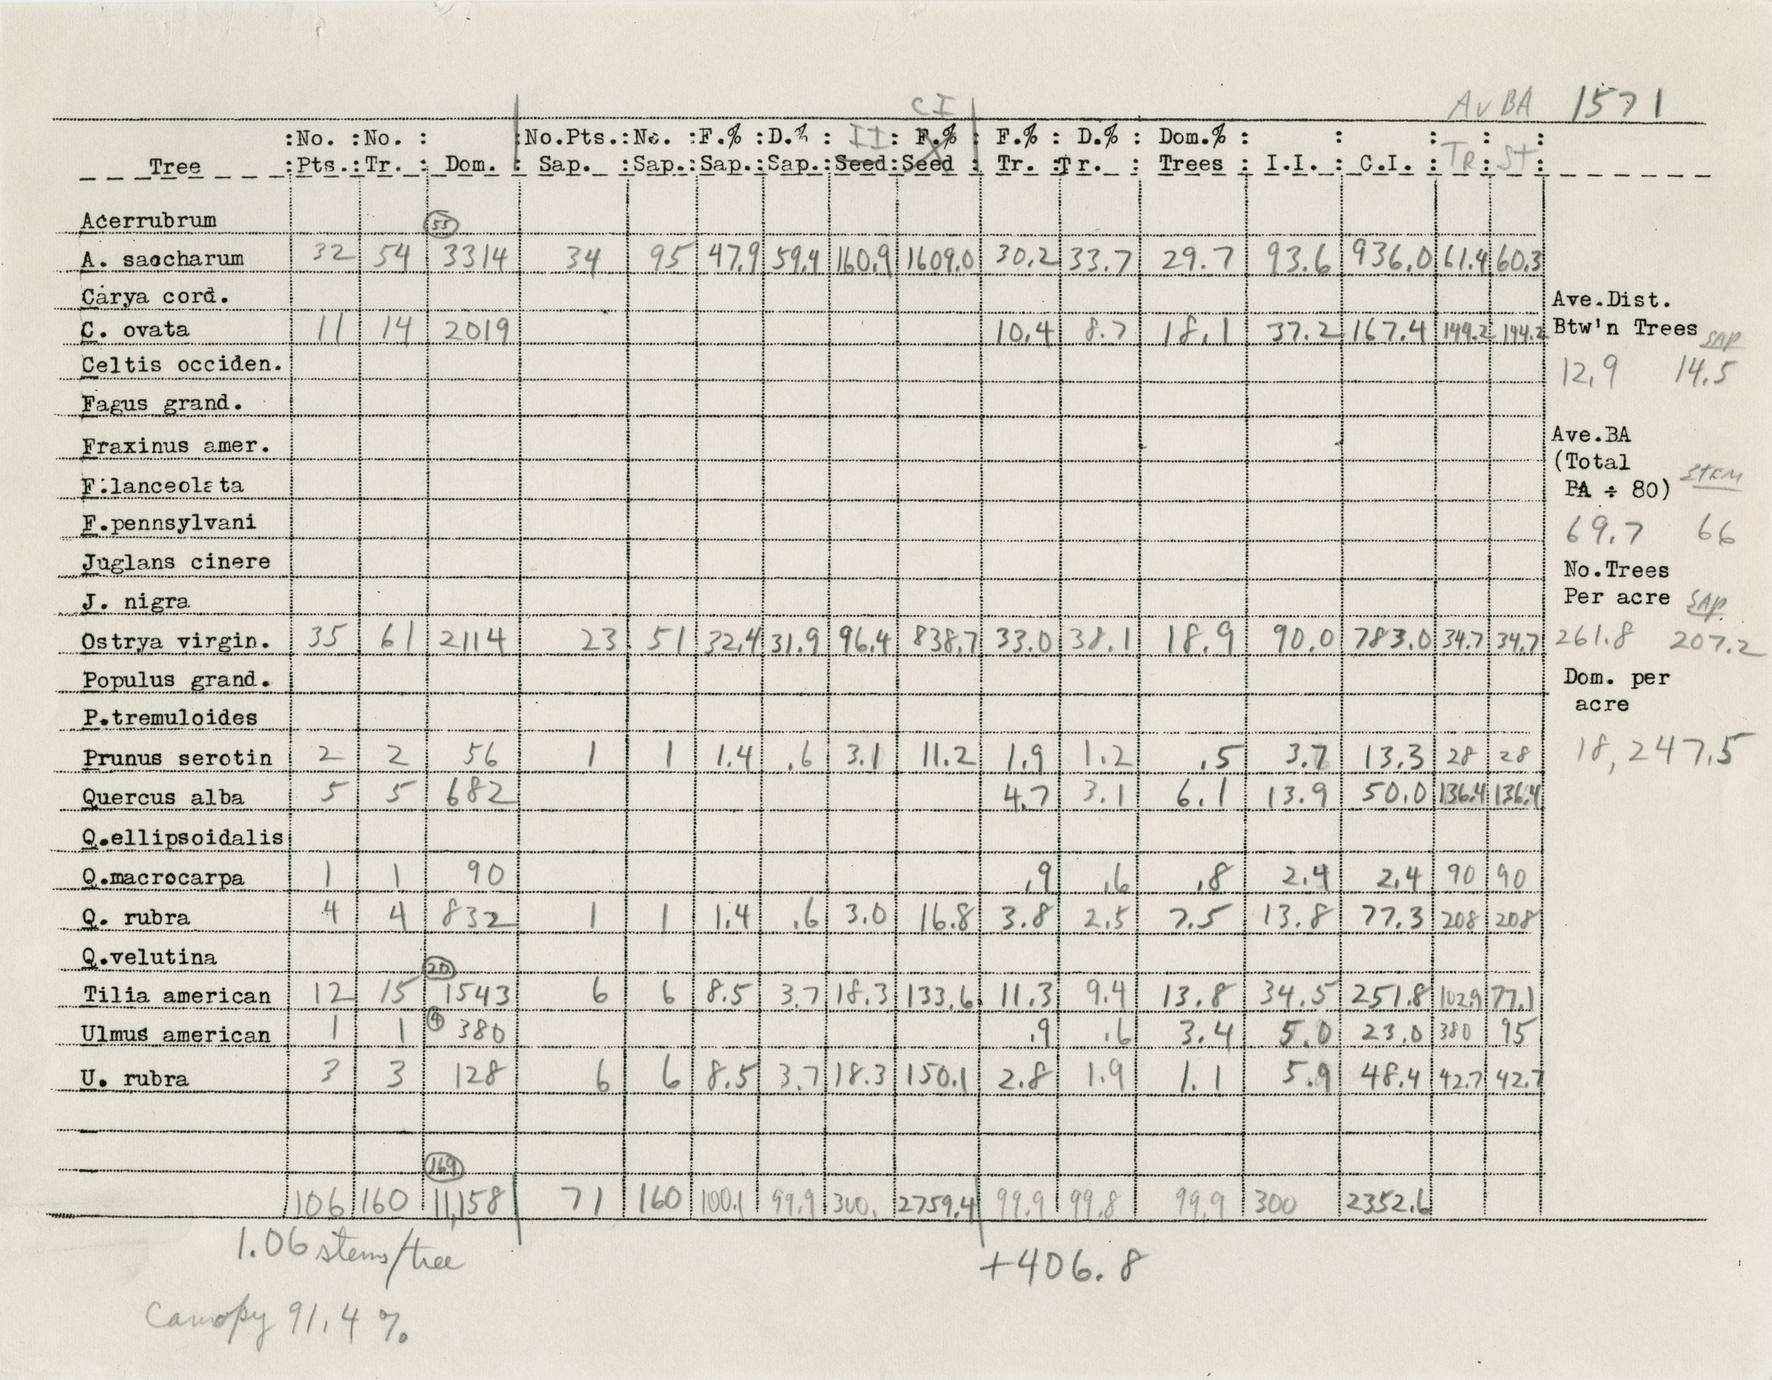 CI AvBA 1571
:No. :No. : :No.Pts.:No. :F.% :D.% : II : F.% : F.% : D.% : Dom.% : : : : :
Tree :Pts.:Tr. : Dom. : Sap. :Sap.:Sap.:Sap.:Seed:Seed : Tr. :Tr. : Trees : I.I. : C.I. : TR : ST :
Acerrubrum 55
A. saccharum 32 54 3314 34 95 47.9 59.4 160.9 1609.0 30.2 33.7 29.7 93.6 936.0 61.4 60.3
Carya cord. Ave.Dist.
C. ovata 11 14 2019 10.4 8.7 18.1 37.2 167.4 144.2 144.2 Btw'n Trees SAP
Celtis occiden. 12.9 14.5
Fagus grand.
Fraxinus amer. Ave.BA
(Total
F.lanceolata BA ÷ 80) STEM
F.pennsylvani 69.7 66
Juglans cinere No.Trees
J. nigra Per acre SAP.
Ostrya virgin. 35 61 2114 23 51 32.4 31.9 96.4 838.7 33.0 38.1 18.9 90.0 783.0 34.7 34.7 261.8 207.2
Populus grand. Dom. per
P.tremuloides acre
Prunus serotin 2 2 56 1 1 1.4 .6 3.1 11.2 1.9 1.2 .5 3.7 13.3 28 28 18,247.5
Quercus alba 5 5 682 4.7 3.1 6.1 13.9 50.0 136.4 136.4
Q.ellipsoidalis
Q.macrocarpa 1 1 90 .9 .6 .8 2.4 2.4 90 90
Q. rubra 4 4 832 1 1 1.4 .6 3.0 16.8 3.8 2.5 7.5 13.8 77.3 208 208
Q.velutina 20
Tilia american 12 15 1543 6 6 8.5 3.7 18.3 133.6 11.3 9.4 13.8 34.5 251.8 102.9 77.1
Ulmus american 1 1 4 380 .9 .6 3.4 5.0 23.0 380 95
U. rubra 3 3 128 6 6 8.5 3.7 18.3 150.1 2.8 1.9 1.1 5.9 48.4 42.7 42.7
169
106 160 11,158 71 160 100.1 99.9 300. 2759.4 99.9 99.8 99.9 300 2352.6
1.06 stems/tree +406.8
Canopy 91.4 %